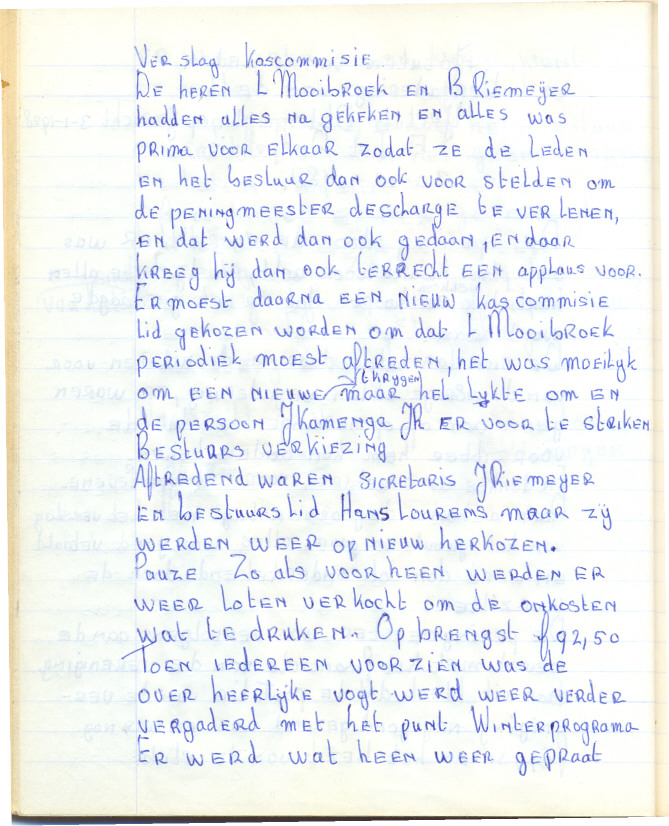 Verslag Kascommisie
De heren L Mooibroek en B Riemeÿer
hadden alles na gekeken en alles was
prima voor elkaar zodat ze de leden
en het bestuur dan ook voor stelden om
de peningmeester descharge te verlenen,
en dat werd dan ook gedaan, en daar
kreeg hij dan ook terrecht een applaus voor.
Er moest daarna een nieuw kascommisie
lid gekozen worden om dat L Mooibroek
periodiek moest aftreden, het was moeilyk
om een nieuwe te krygen maar het lykte om en
de persoon J Kamenga JR er voor te striken
Bestuurs verkiezing
Aftredend waren Sicretaris J Riemeyer
en bestuurs lid Hans Lourems maar zÿ
werden weer op nieuw herkozen.
Pauze Zo als voor heen werden er
weer loten verkocht om de onkosten
wat te druken. Opbrengst f 92,50
Toen iedereen voorzien was de
over heerlyke vogt werd weer verder
vergaderd met het punt Winterprograma
Er werd wat heen weer gepraat